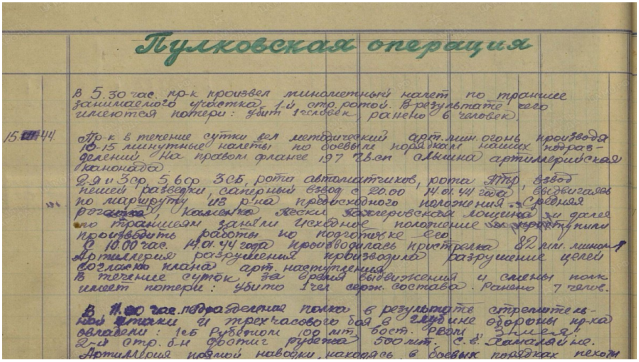 Пулковская операция
В 5.30 час. пр-к произвел минометный налет по траншее
занимаемого участка 1-й стр. ротой. В результате чего
имеются потери: убит 1 человек, ранено 8 человек.
15 44 Пр-к в течение сутки вел методический арт. мин. огонь производя
10-15 минутные налеты по боевым порядкам наших подраз-
делений. На правом фланге 197 артиллерийская
канонада.
2-я и 3 ср. 5 и 6 ср. 3 сб, рота автоматчиков, рота ПТР, взвод
пешей разведки, саперный взвод с 20.00 14.01.44 года, выдвигаясь
по маршруту из р-на положения Средняя
Каменка, Пески лощина и далее
по траншеям заняли исходное положение приступили
производить работы по подготовке
С 10.00 час. 14.01.44 года производилась пристрелка 82 м.м.
Артиллерия разрушения производила разрушение целей
согласно плана арт. наступления.
В течение суток, за время выдвижения и смены полк
имеет потери: убито 1 чел. серж. состава. Ранено 7 челов.
В 11.00 час. подразделения полка в результате стремитель-
ной атаки и трехчасового боя в глубине обороны пр-ка
овладели: 1 сб рубежом
2-й стр. б-н достиг рубежа 500 мт. с.в.
Артиллерия прямой наводки, находясь в боевых порядках пехоты